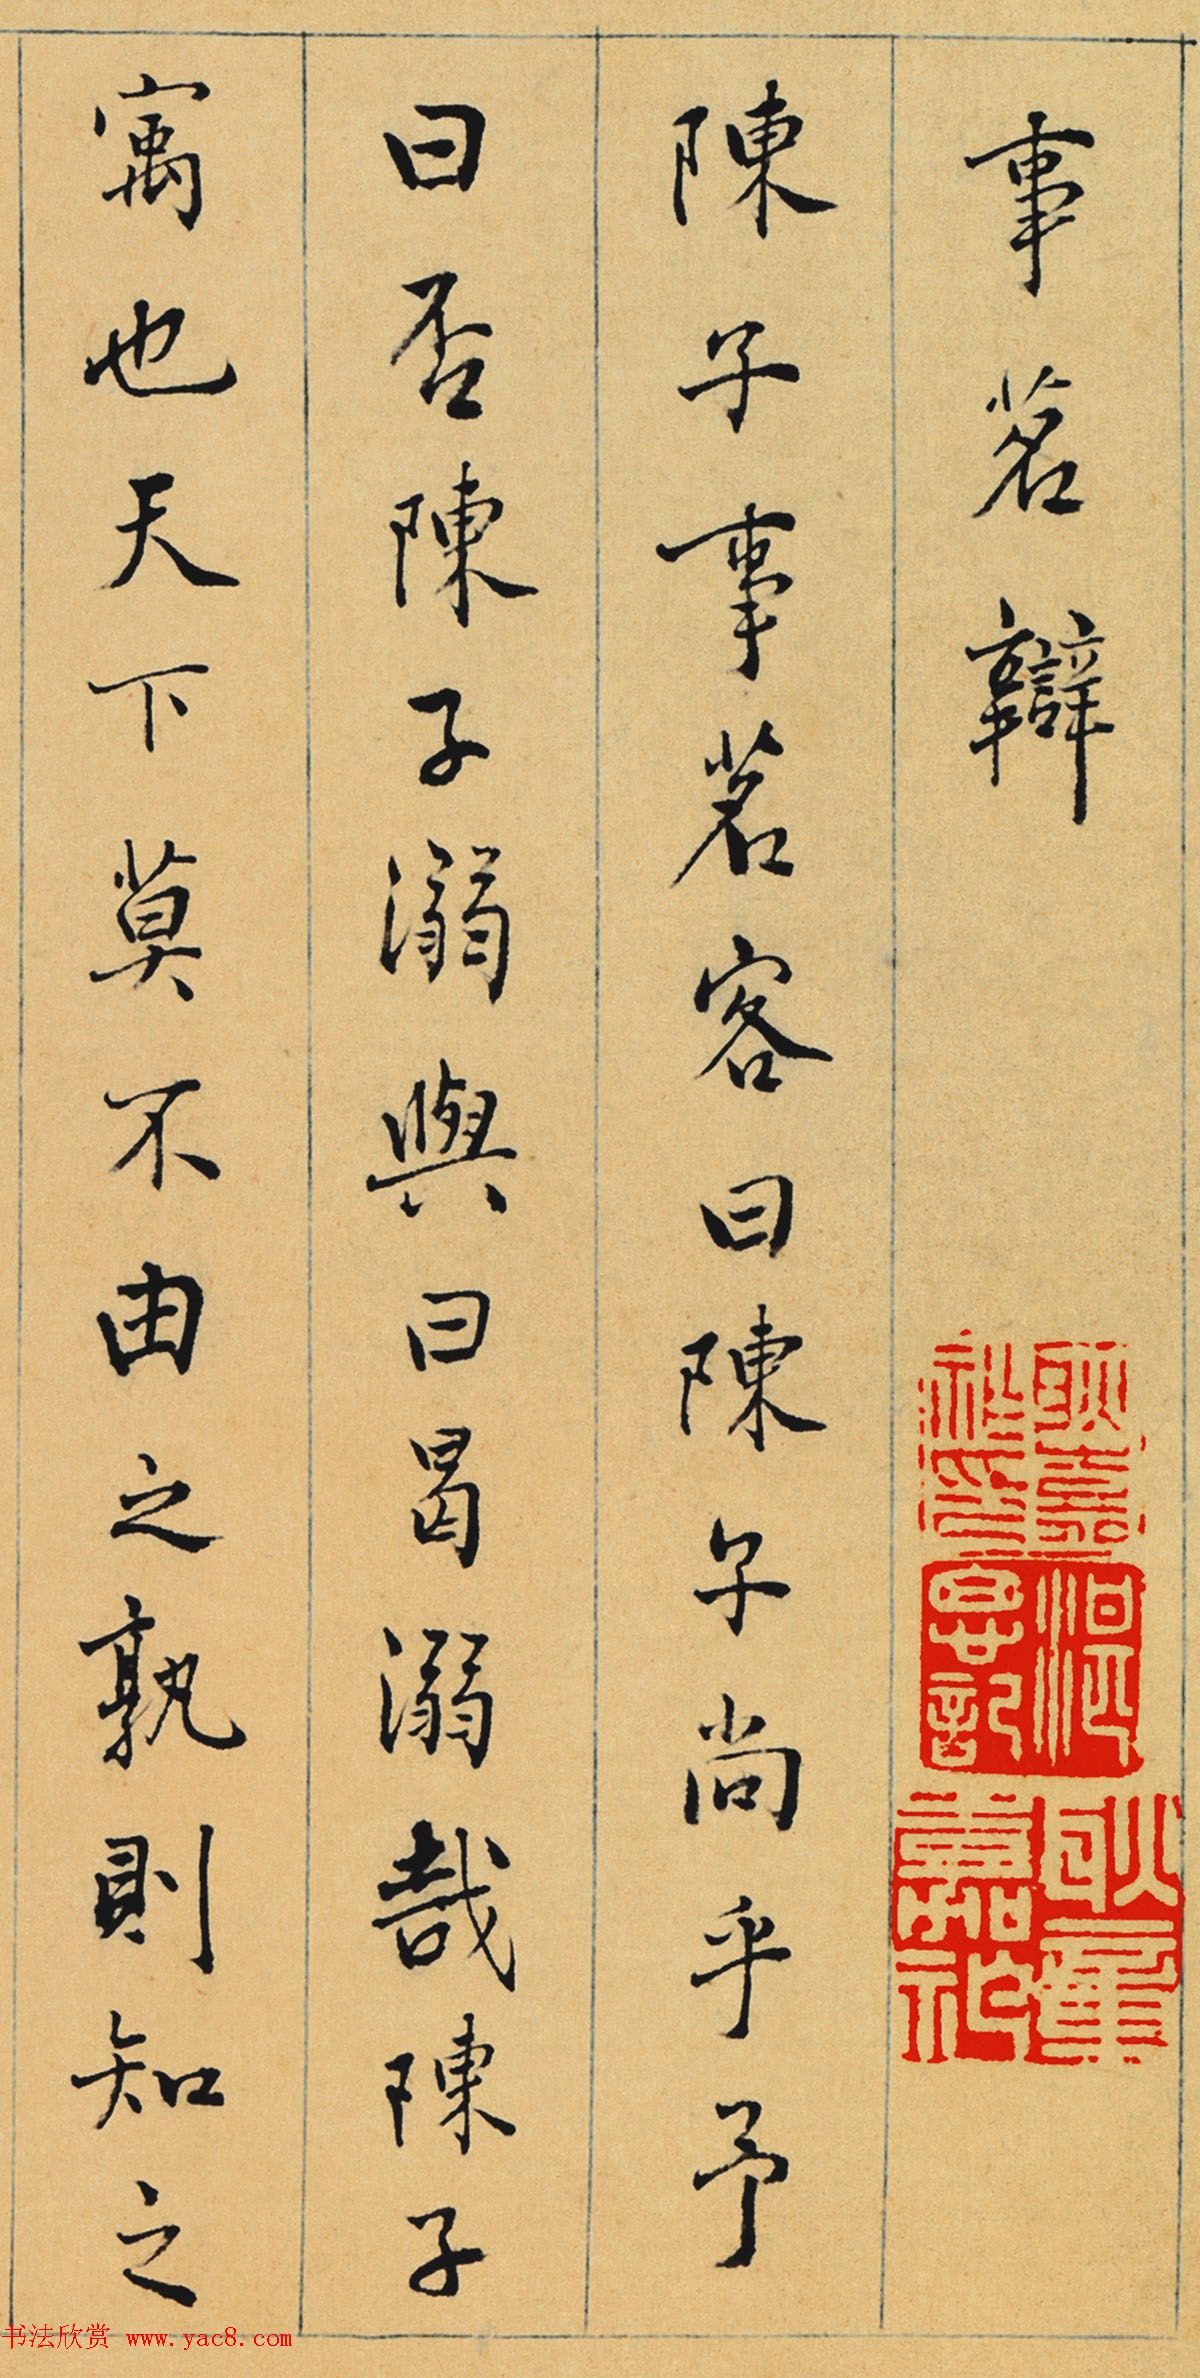 事茗辯
陳子事茗客曰陳子尚乎予
曰否陳子溺與曰曷溺哉陳子
寓也天下莫不由之孰則知之
书法欣赏 www.yac8.com